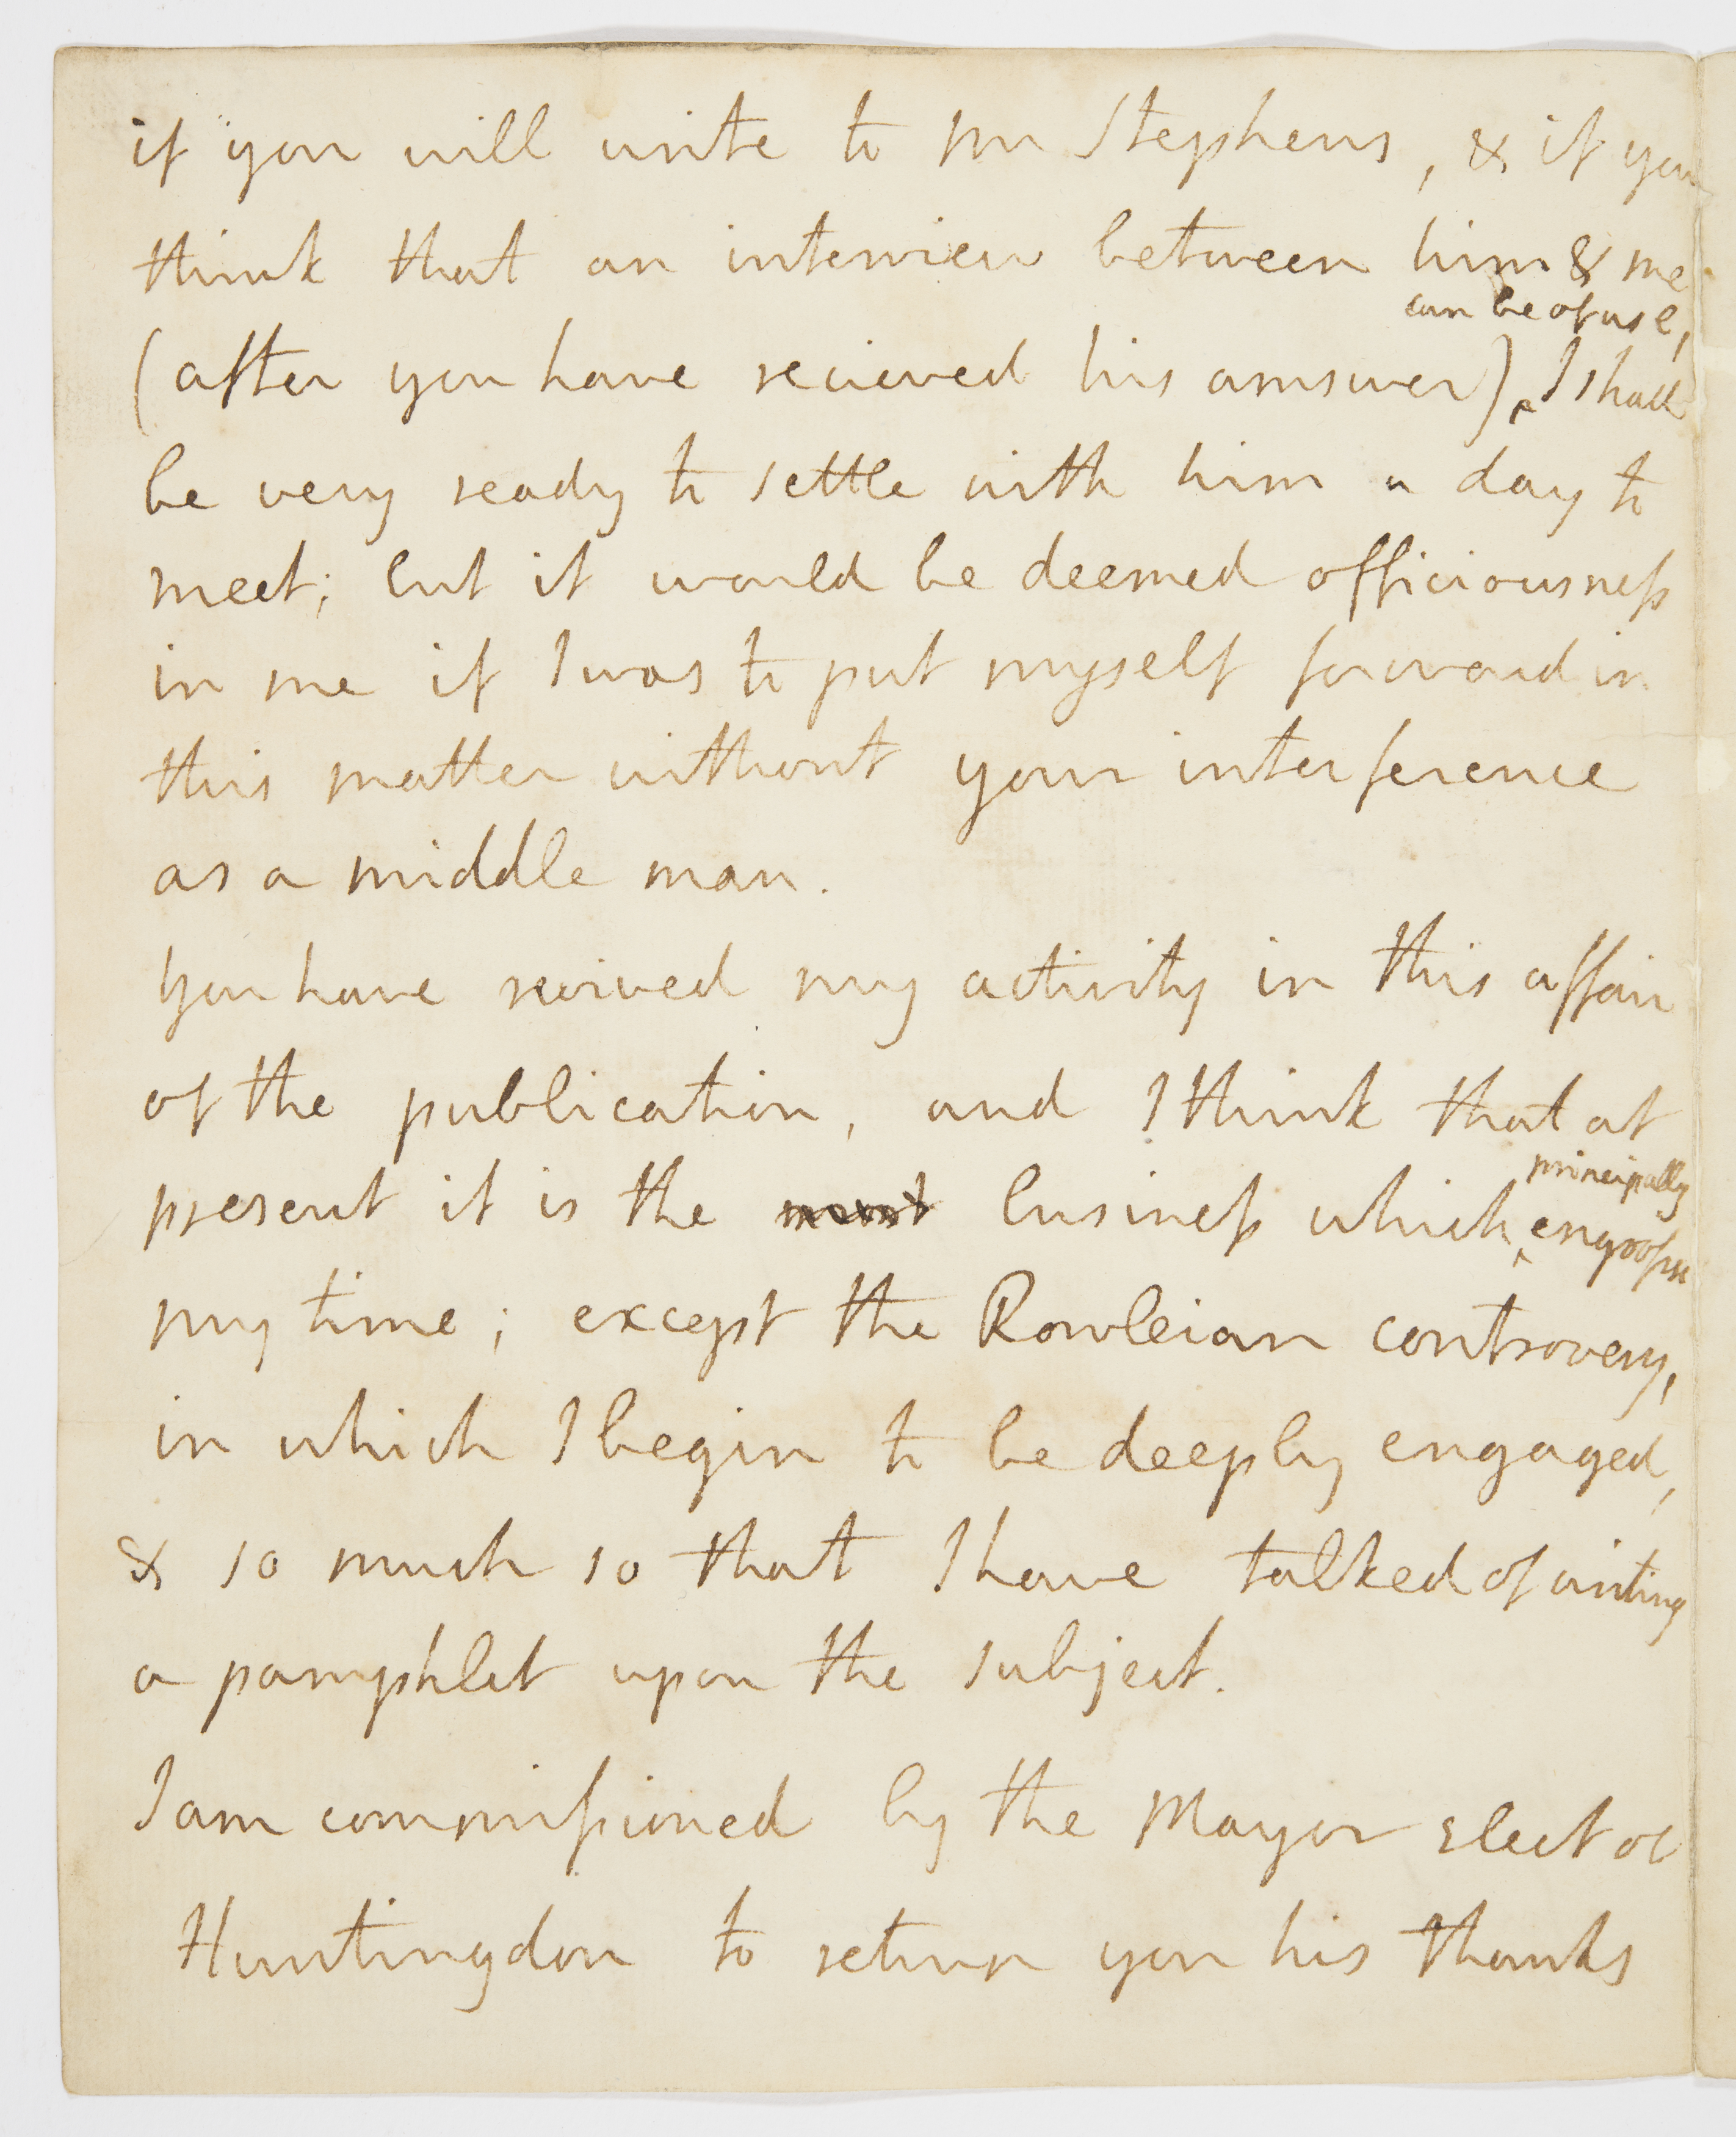 if you will write to Mr Stephens, & if you
think that an interview between him & me
can be of use,
(after you have recieved his answer)‸ I shall
be very ready to settle with him a day to
meet; but it would be deemed officiousneſs
in me if I was to put myself forward in
this matter without your interference
as a middle man.
You have revived my activity in this affair
of the publication, and I think that at
principally
present it is the most busineſs which‸ engroſses
my time; except the Rowleian controversy,
in which I begin to be deeply engaged,
& so much so that I have talked of writing
a pamphlet upon the subject.
I am commiſsioned by the Mayor elect of
Huntingdon to return you his thanks